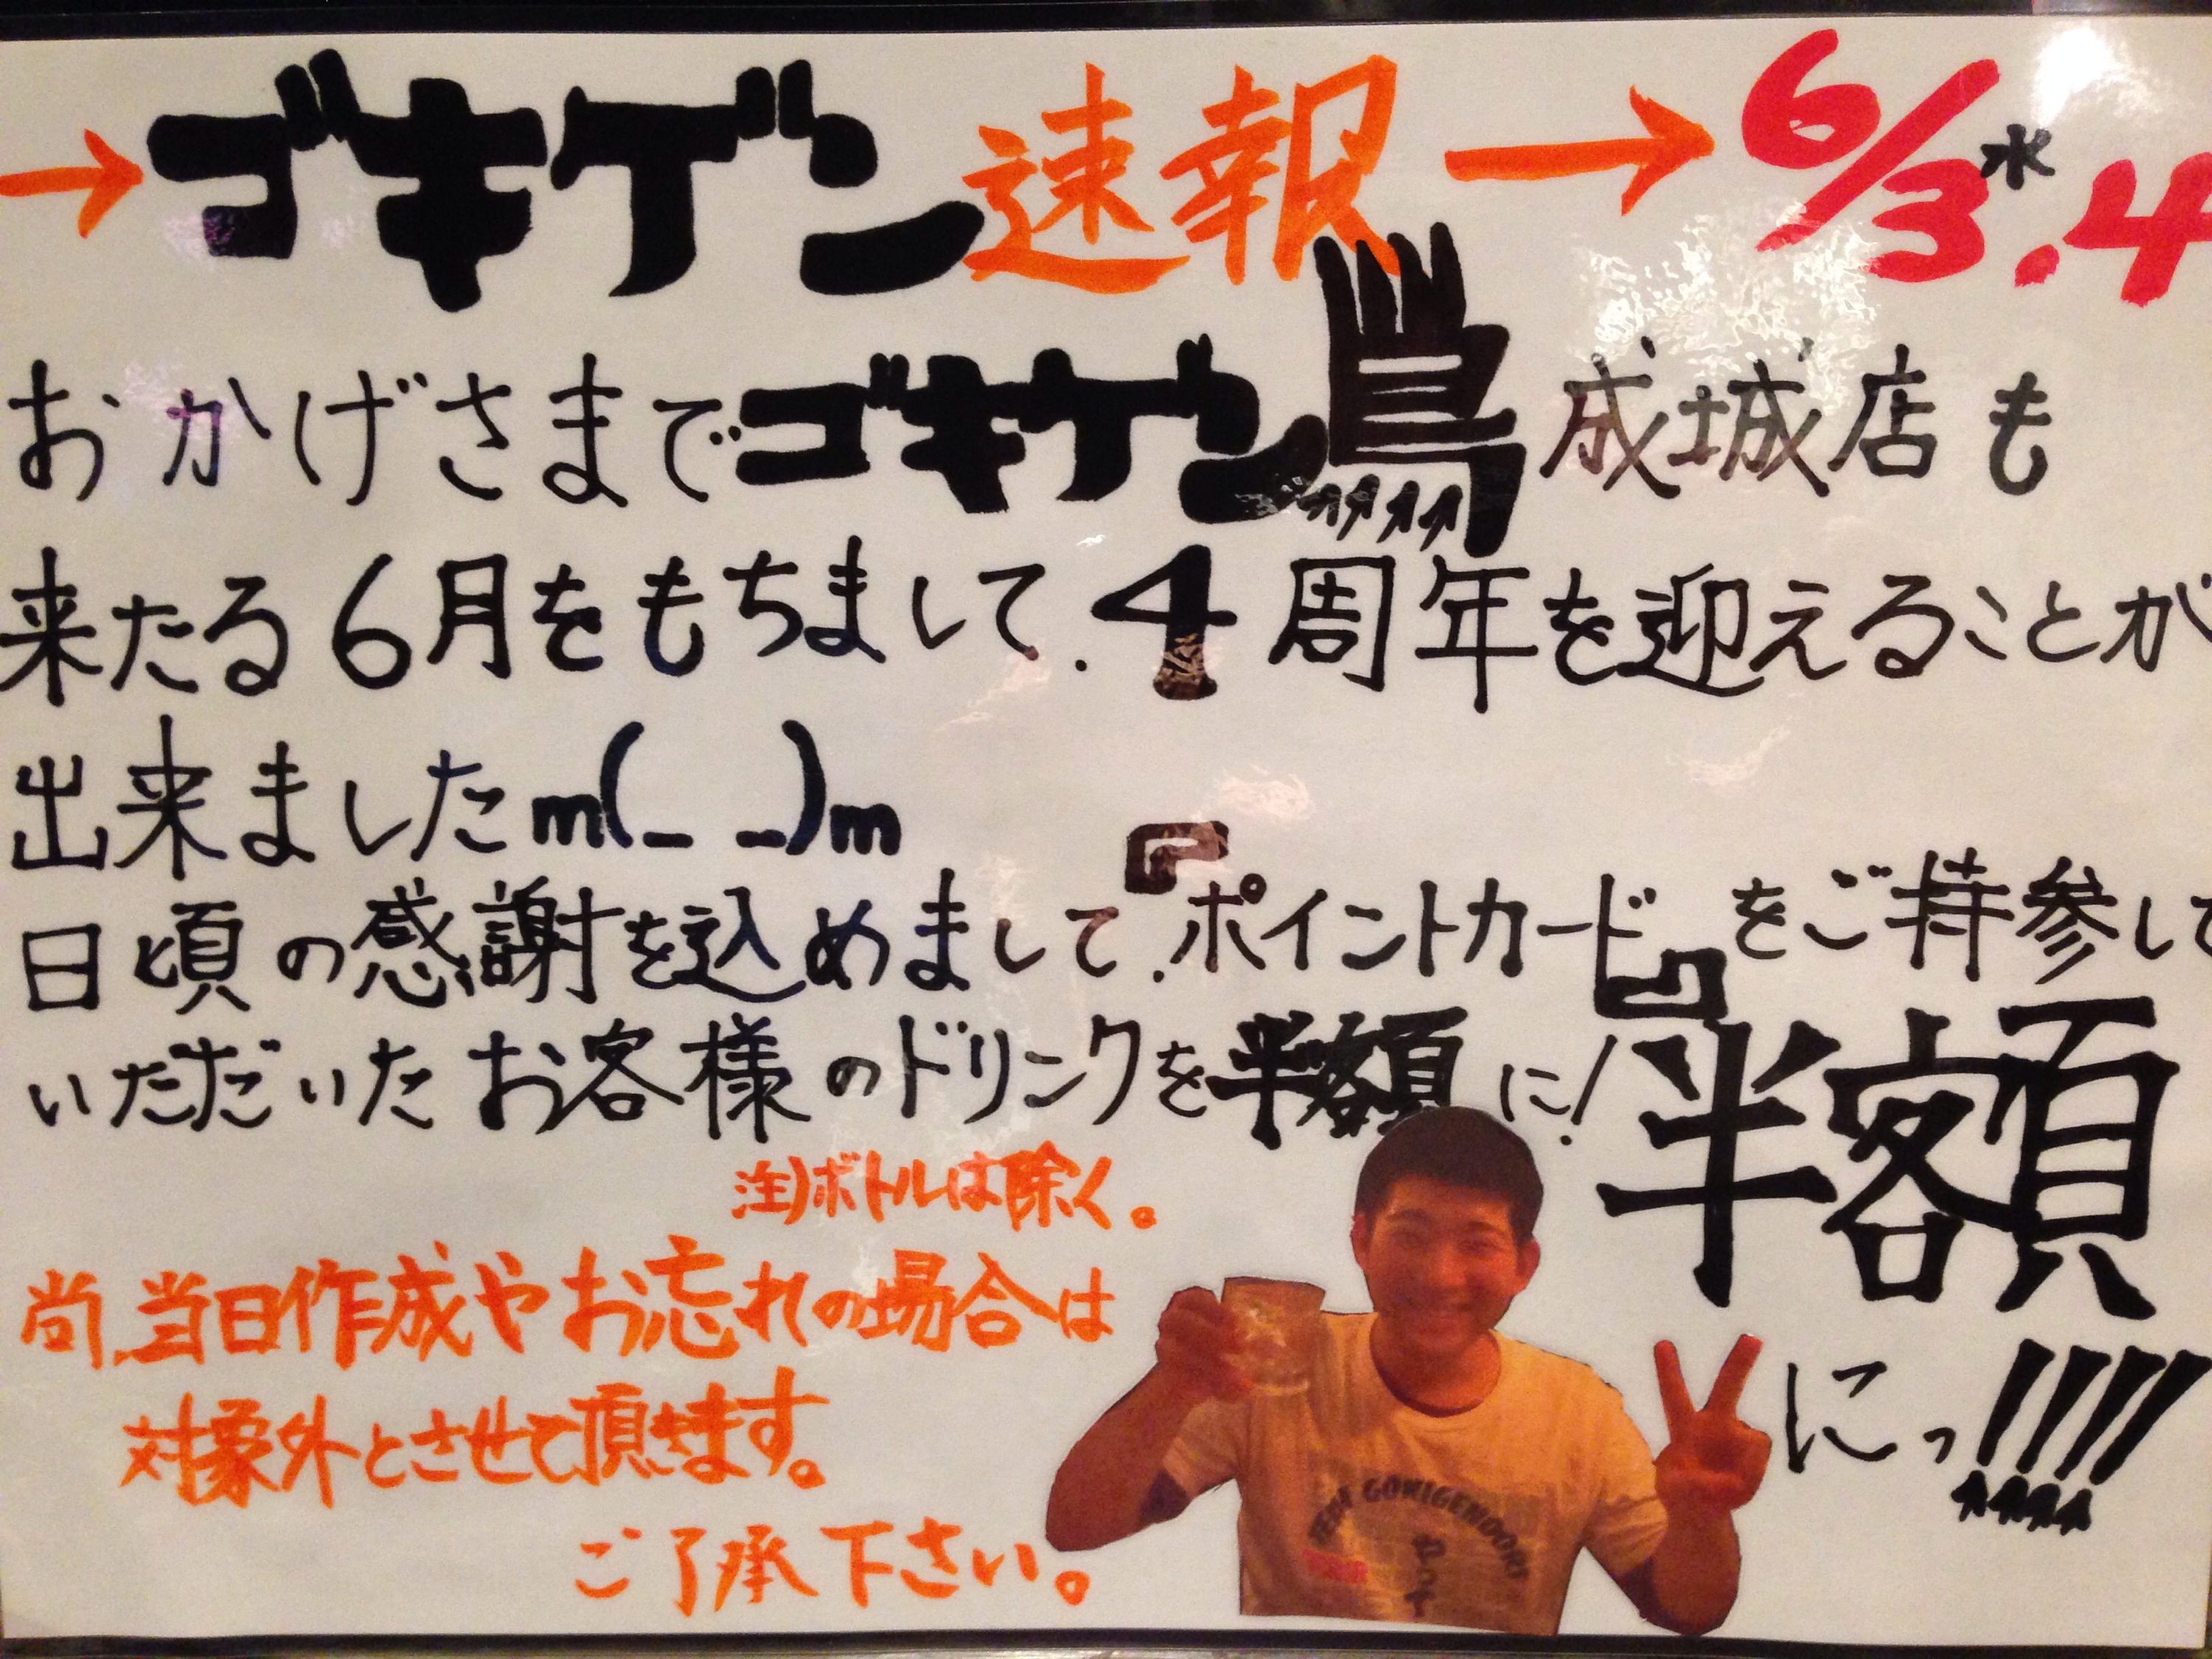 →ゴキゲン速報→6/3水.4
おかげさまでゴキゲン鳥成城店も
来たる6月をもちまして.4周年を迎えることが
出来ましたm(_ _)m
日頃の感謝を込めまして.『ポイントカード』をご持参して
いただいたお客様のドリンクを半額に!
半額
注)ボトルは除く。
尚、当日作成やお忘れの場合は
対象外とさせて頂きます。
ご了承下さい。
にっ!!!!
TEAM GOKIGENDORI